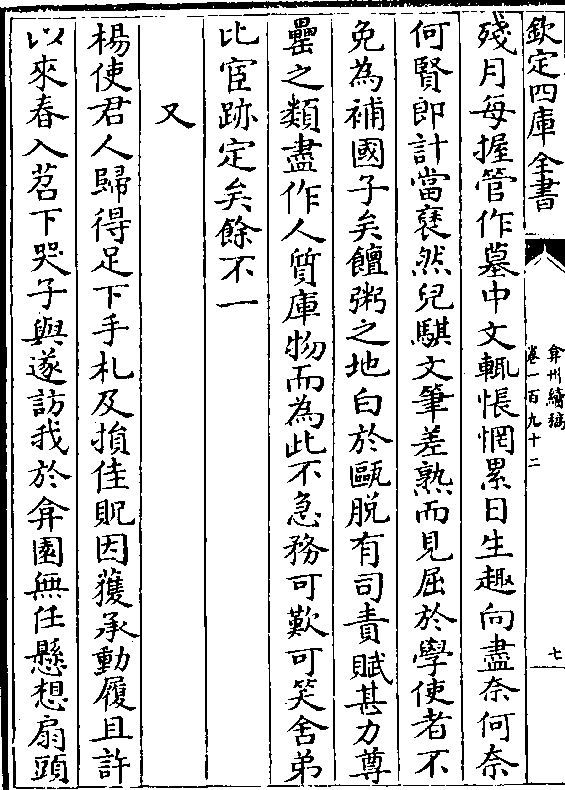 欽定四庫全書
弇州續稿
卷一百九十二
七
殘月每握管作墓中文輒悵惘累日生趣向盡奈何奈
何賢郎計當褎然兒騏文筆差熟而見屈於學使者不
免為補國子矣饘粥之地白於甌脫有司責賦甚力尊
罍之類盡作人質庫物而為此不急務可歎可笑舍弟
比宦跡定矣餘不一
又
楊使君人歸得足下手札及損佳貺因獲承動履且許
以來春入苕下哭子與遂訪我於弇園無任懸想扇頭